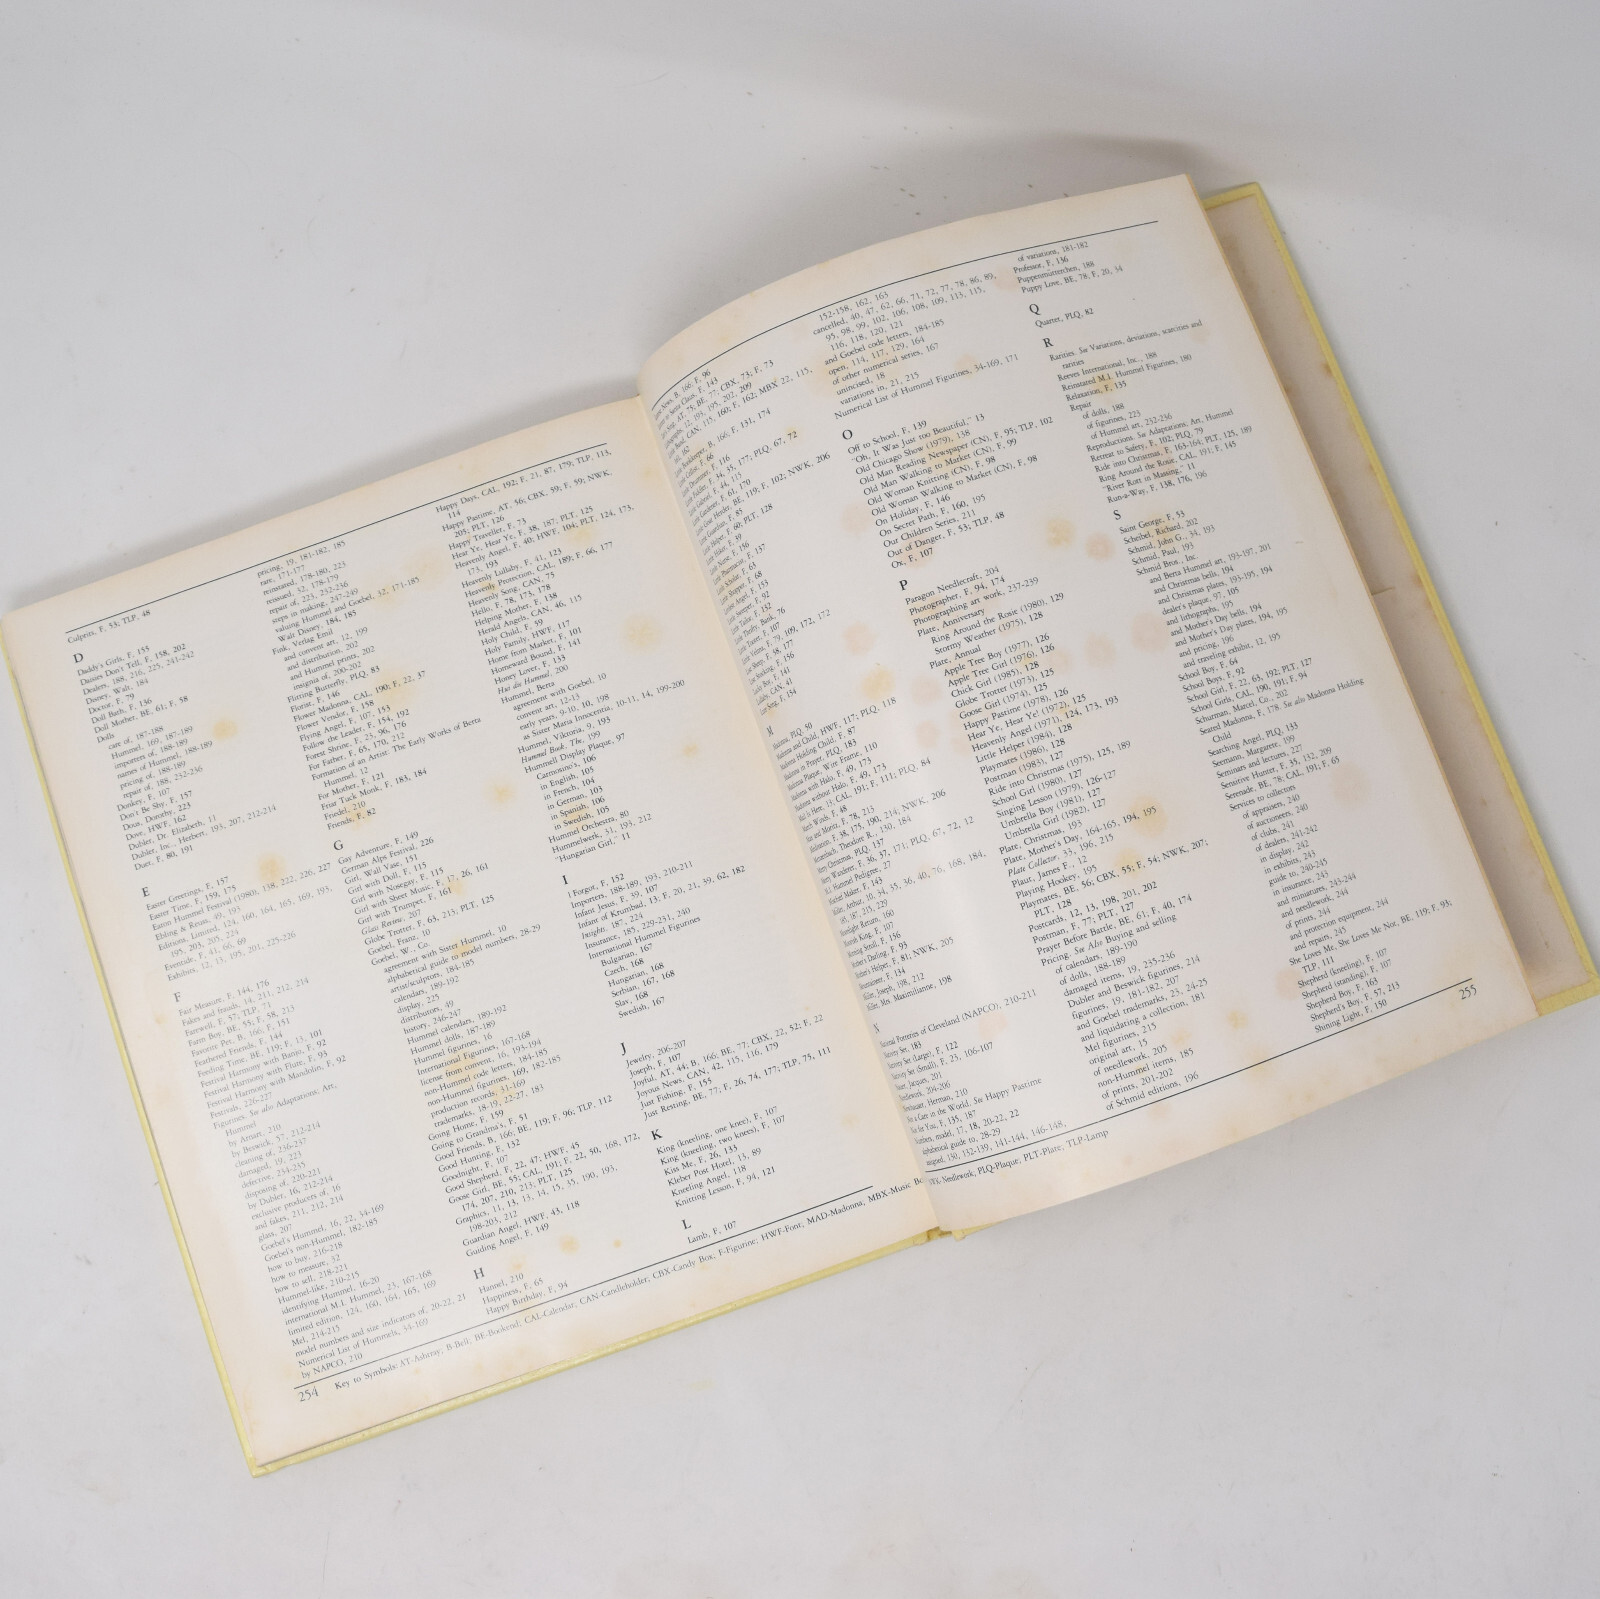 Culprits, F, 53; TLP, 48
D
Daddy's Girls, F, 155
Daisies Don't Tell, F, 158, 202
Dealers, 188, 216, 225, 241-242
Disney, Walt, 184
Doctor, F, 79
Doll Bath, F, 136
Doll Mother, BE, 61; F, 58
Dolls
care of, 187-188
Hummel, 169, 187-189
importers of, 188-189
names of Hummel, 188-189
pricing of, 188-189
repair of, 188, 232-236
Donkey, F, 107
Don't Be Shy, F, 157
Dous, Dorothy, 223
Dove, HWF, 162
Dubler, Dr. Elizabeth, 11
Dubler, Inc., Herbert, 193, 207, 212-214
Duet, F, 80, 191
E
Easter Greetings, F, 157
Easter Time, F, 159, 175
Eaton Hummel Festival (1980), 138, 222, 226, 227
Ebling & Reuss, 49, 193
Editions, Limited, 124, 160, 164, 165, 169, 195,
195, 203, 205, 224
Eventide, F, 41, 66, 69
Exhibits, 12, 13, 195, 201, 225-226
F
Fair Measure, F, 144, 176
Fakes and frauds, 14, 211, 212, 214
Farewell, F, 57, TLP, 71
Farm Boy, BE, 55; F, 58, 213
Favorite Pet, B, 166; F, 151
Feathered Friends, F, 144
Feeding Time, BE, 119; F, 13, 101
Festival Harmony with Banjo, F, 92
Festival Harmony with Flute, F, 93
Festival Harmony with Mandolin, F, 92
Festivals, 226-227
Figurines. See also Adaptations, Art,
Hummel
by Arnart, 210
by Beswick, 57, 212-214
cleaning of, 236-237
damaged, 19, 223
defective, 234-235
disposing of, 220-221
by Dubler, 16, 212-214
exclusive producers of, 16
and fakes, 211, 212, 214
glass, 207
Goebel's Hummel, 16, 22, 34-169
Goebel's non-Hummel, 182-185
how to buy, 216-218
how to measure, 32
how to sell, 218-221
Hummel-like, 210-215
identifying Hummel, 16-20
international M.I. Hummel, 23, 167-168
limited edition, 124, 160, 164, 165, 169
Mel, 214-215
model numbers and size indicators of, 20-22, 21
Numerical List of Hummels, 34-169
by NAPCO, 210
pricing, 19, 181-182, 185
rare, 171-177
reinstated, 178-180, 223
reissued, 32, 178-179
repair of, 223, 232-236
steps in making, 247-249
valuing Hummel and Goebel, 32, 171-185
Walt Disney, 184, 185
Fink, Verlag Emil
and convent art, 12, 199
and distribution, 202
and Hummel prints, 202
insignia of, 200-202
Flitting Butterfly, PLQ, 83
Florist, F, 146
Flower Madonna, CAL, 190; F, 22, 37
Flower Vendor, F, 158
Flying Angel, F, 107, 153
Follow the Leader, F, 154, 192
Forest Shrine, F, 25, 96, 176
For Father, F, 65, 170, 212
Formation of an Artist: The Early Works of Berta
Hummel, 12
For Mother, F, 121
Friar Tuck Monk, F, 183, 184
Friedel, 210
Friends, F, 82
G
Gay Adventure, F, 149
German Alps Festival, 226
Girl, Wall Vase, 151
Girl with Doll, F, 115
Girl with Nosegay, F, 115
Girl with Sheet Music, F, 17, 26, 161
Girl with Trumpet, F, 161
Glass Review, 207
Globe Trotter, F, 63, 213, PLT, 125
Goebel, Franz, 10
Goebel, W., Co.
agreement with Sister Hummel, 10
alphabetical guide to model numbers, 28-29
artist/sculptors, 184-185
calendars, 189-192
display, 225
distributors, 49
history, 246-247
Hummel calendars, 189-192
Hummel dolls, 187-189
Hummel figurines, 16
International Figurines, 167-168
license from convent, 16, 193-194
non-Hummel code letters, 184-185
non-Hummel figurines, 169, 182-185
production records, 31-169
trademarks, 18-19, 22-27, 183
Going Home, F, 159
Going to Grandma's, F, 51
Good Friends, B, 166; BE, 119; F, 96; TLP, 112
Good Hunting, F, 132
Goodnight, F, 107
Good Shepherd, F, 22, 47; HWF, 45
Goose Girl, BE, 55; CAL, 191; F, 22, 50, 168, 172,
174, 207, 210, 213; PLT, 125
Graphics, 11, 13, 13, 14, 15, 35, 190, 193,
198-203, 212
Guardian Angel, HWF, 43, 118
Guiding Angel, F, 149
H
Hannel, 210
Happiness, F, 65
Happy Birthday, F, 94
Happy Days, CAL, 192; F, 21, 87, 179; TLP, 113,
114
Happy Pastime, AT, 56; CBX, 59; F, 59; NWK,
205; PLT, 126
Happy Traveller, F, 73
Hear Ye, Hear Ye, F, 38, 187; PLT, 125
Heavenly Angel, F, 40; HWF, 104; PLT, 124, 173,
173, 193
Heavenly Lullaby, F, 41, 123
Heavenly Protection, CAL, 189; F, 66, 177
Heavenly Song, CAN, 75
Hello, F, 78, 173, 178
Helping Mother, F, 138
Herald Angels, CAN, 46, 115
Holy Child, F, 59
Holy Family, HWF, 117
Home from Market, F, 101
Homeward Bound, F, 141
Honey Lover, F, 133
Hui die Hummel, 200
Hummel, Berta
agreement with Goebel, 10
convent art, 12-13
early years, 9-10, 10, 198
as Sister Maria Innocentia, 10-11, 14, 199-200
Hummel, Viktoria, 9, 193
Hummel Book, The, 199
Hummel Display Plaque, 97
Carmosino's, 106
in English, 105
in French, 104
in German, 103
in Spanish, 106
in Swedish, 105
Hummel Orchestra, 80
Hummelwerk, 31, 193, 212
"Hungarian Girl," 11
I
I Forgot, F, 152
Importers, 188-189, 193, 210-211
Infant Jesus, F, 39, 107
Infant of Krumbad, 13; F, 20, 21, 39, 62, 182
Insight, 187, 224
Insurance, 185, 229-231, 240
International Hummel Figurines
Bulgarian, 167
Czech, 168
Hungarian, 168
Serbian, 167, 168
Slav, 168
Swedish, 167
J
Jewelry, 206-207
Joseph, F, 107
Joyful, AT, 44; B, 166; BE, 77; CBX, 22, 52; F, 22
Joyous News, CAN, 42, 115, 116, 179
Just Fishing, F, 155
Just Resting, BE, 77; F, 26, 74, 177; TLP, 75, 111
K
King (kneeling, one knee), F, 107
King (kneeling, two knees), F, 107
Kiss Me, F, 26, 135
Kleber Post Hotel, 13, 89
Kneeling Angel, 118
Knitting Lesson, F, 94, 121
L
Lamb, F, 107
254 Key to Symbols: AT-Ashtray, B-Bell, BE-Bookend, CAL-Calendar, CAN-Candleholder, CBX-Candy Box, F-Figurine, HWF-Font, MAD-Madonna, MBX-Music
News, B, 166, F, 96
Santa Claus, F, 143
AT, 75; BE, 77; CBX, 73; F, 73
12, 193, 195, 202, 209
CAN, 115, 160; F, 162; MBX 22, 115,
162
Bookkeeper, B, 166; F, 131, 174
Cellist, F, 66
Drummer, F, 116
Fiddler, F, 34, 35, 177; PLQ, 67, 72
Gabriel, F, 44, 115
Gardener, F, 61, 170
Goat Herder, BE, 119; F, 102; NWK, 206
Guardian, F, 85
Helper, F, 60; PLT, 128
Hiker, F, 39
Nurse, F, 156
Pharmacist, F, 137
Scholar, F, 63
Shopper, F, 68
Sweeper, F, 92
Tailor, F, 132
Thrifty, Bank, 76
Tooter, F, 107
F, 79, 109, 172, 172
Lost Sheep, F, 58, 177
Lost Stocking, F, 156
Lucky Boy, F, 141
Lullaby, CAN, 41
Lute Song, F, 154
M
Madonna, PLQ, 50
Madonna and Child, HWF, 117; PLQ, 118
Madonna Holding Child, F, 87
Madonna in Prayer, PLQ, 183
Madonna Plaque, Wire Frame, 110
Madonna with Halo, F, 49, 173
Madonna without Halo, F, 49, 173
Mail Is Here, 13; CAL, 191; F, 111; PLQ, 84
March Winds, F, 48
Max and Moritz, F, 78, 213
Meditation, F, 38, 175, 190, 214, NWK, 206
Merry Christmas, PLQ, 137
Merry Wanderer, F, 36, 37, 171; PLQ, 67, 72, 12
M.I. Hummel Pedigree, 27
Mischief Maker, F, 143
Miller, Arthur, 10, 34, 35, 36, 40, 76, 168, 184,
185, 187, 215, 229
Moonlight Return, 160
Moorish King, F, 107
Morning Stroll, F, 156
Mother's Darling, F, 93
Mother's Helper, F, 81; NWK, 205
Mountaineer, F, 134
Müller, Joseph, 198, 212
Müller, Mrs. Maximilianne, 198
N
National Potteries of Cleveland (NAPCO), 210-211
Nativity Set, 183
Nativity Set (Large), F, 122
Nativity Set (Small), F, 25, 106-107
Nauer, Jacques, 201
Needlework, 204-206
Neubauer, Herman, 210
Not a Care in the World. See Happy Pastime
Not for You, F, 135, 187
Numbers, model, 17, 18, 20-22, 22
alphabetical guide to, 28-29
assigned, 130, 132-139, 141-144, 146-148,
152-158, 162, 163
cancelled, 40, 47, 62, 66, 71, 72, 77, 78, 86, 89,
95, 98, 99, 102, 106, 108, 109, 113, 115,
116, 118, 120, 121
and Goebel code letters, 184-185
open, 114, 117, 129, 164
of other numerical series, 167
unincised, 18
variations in, 21, 215
Numerical List of Hummel Figurines, 34-169, 171
O
Off to School, F, 139
"Oh, It Was Just too Beautiful," 13
Old Chicago Show (1979), 138
Old Man Reading Newspaper (CN), F, 95; TLP, 102
Old Man Walking to Market (CN), F, 99
Old Woman Knitting (CN), F, 98
Old Woman Walking to Market (CN), F, 98
On Holiday, F, 146
On Secret Path, F, 160, 195
Our Children Series, 211
Out of Danger, F, 53; TLP, 48
Ox, F, 107
P
Paragon Needlecraft, 204
Photographer, F, 94, 174
Photographing art work, 237-239
Plate, Anniversary
Ring Around the Rosie (1980), 129
Stormy Weather (1975), 128
Plate, Annual
Apple Tree Boy (1977), 126
Apple Tree Girl (1976), 126
Chick Girl (1985), 128
Globe Trotter (1973), 125
Goose Girl (1974), 125
Happy Pastime (1978), 126
Hear Ye, Hear Ye! (1972), 125
Heavenly Angel (1971), 124, 173, 193
Little Helper (1984), 128
Playmates (1986), 128
Postman (1983), 127
Ride into Christmas (1975), 125, 189
School Girl (1980), 127
Singing Lesson (1979), 126-127
Umbrella Boy (1981), 127
Umbrella Girl (1982), 127
Plate, Christmas, 193
Plate, Mother's Day, 164-165, 194, 195
Plate Collector, 33, 196, 215
Plaut, James F., 12
Playing Hookey, 195
Playmates, BE, 56; CBX, 55; F, 54; NWK, 207;
PLT, 128
Postcards, 12, 13, 198, 201, 202
Postman, F, 77; PLT, 127
Prayer Before Battle, BE, 61; F, 40, 174
Pricing. See Also Buying and selling
of calendars, 189-190
of dolls, 188-189
damaged items, 19, 235-236
Dubler and Beswick figurines, 214
figurines, 19, 181-182, 207
and Goebel trademarks, 23, 24-25
and liquidating a collection, 181
Mel figurines, 215
original art, 15
of needlework, 205
non-Hummel items, 185
of prints, 201-202
of Schmid editions, 196
of variations, 181-182
Professor, F, 136
Puppenmütterchen, 188
Puppy Love, BE, 78; F, 20, 34
Q
Quartet, PLQ, 82
R
Rarities. See Variations, deviations, scarcities and
rarities
Reeves International, Inc., 188
Reinstated M.I. Hummel Figurines, 180
Relaxation, F, 135
Repair
of dolls, 188
of figurines, 223
of Hummel art, 232-236
Reproductions. See Adaptations, Art, Hummel
Retreat to Safety, F, 102; PLQ, 79
Ride into Christmas, F, 163-164; PLT, 125, 189
Ring Around the Rosie, CAL, 191; F, 145
"River Rott in Massing," 11
Run-a-Way, F, 138, 176, 196
S
Saint George, F, 53
Scheibel, Richard, 202
Schmid, John G., 34, 193
Schmid, Paul, 193
Schmid Bros., Inc.
and Berta Hummel art, 193-197, 201
and Christmas bells, 194
and Christmas plates, 193-195, 194
dealer's plaque, 97, 105
and lithographs, 195
and Mother's Day bells, 194
and Mother's Day plates, 194, 195
and pricing, 196
and traveling exhibit, 12, 195
School Boy, F, 64
School Boys, F, 92
School Girl, F, 22, 63, 192; PLT, 127
School Girls, CAL, 190, 191; F, 94
Schurman, Marcel, Co., 202
Seated Madonna, F, 178. See also Madonna Holding
Child
Searching Angel, PLQ, 133
Seemann, Margarete, 199
Seminars and lectures, 227
Sensitive Hunter, F, 35, 132, 209
Serenade, BE, 78; CAL, 191; F, 65
Services to collectors
of appraisers, 240
of auctioneers, 240
of clubs, 241
of dealers, 241-242
in display, 242
in exhibits, 243
guide to, 240-245
in insurance, 243
and miniatures, 243-244
and needlework, 244
of prints, 244
and protection equipment, 244
and repairs, 245
She Loves Me, She Loves Me Not, BE, 119; F, 93;
TLP, 111
Shepherd (kneeling), F, 107
Shepherd (standing), F, 107
Shepherd Boy, F, 163
Shepherd's Boy, F, 57, 213
Shining Light, F, 150
Needlework, PLQ-Plaque, PLT-Plate, TLP-Lamp
255